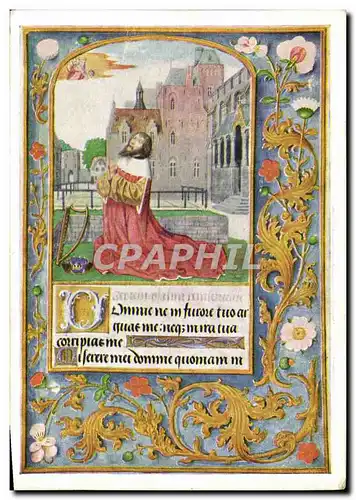 CPARAMA.COM
Domine ne in furore tuo ar
guas me: neq; in ira tua
corripias me
Miserere mei domine quoniam in